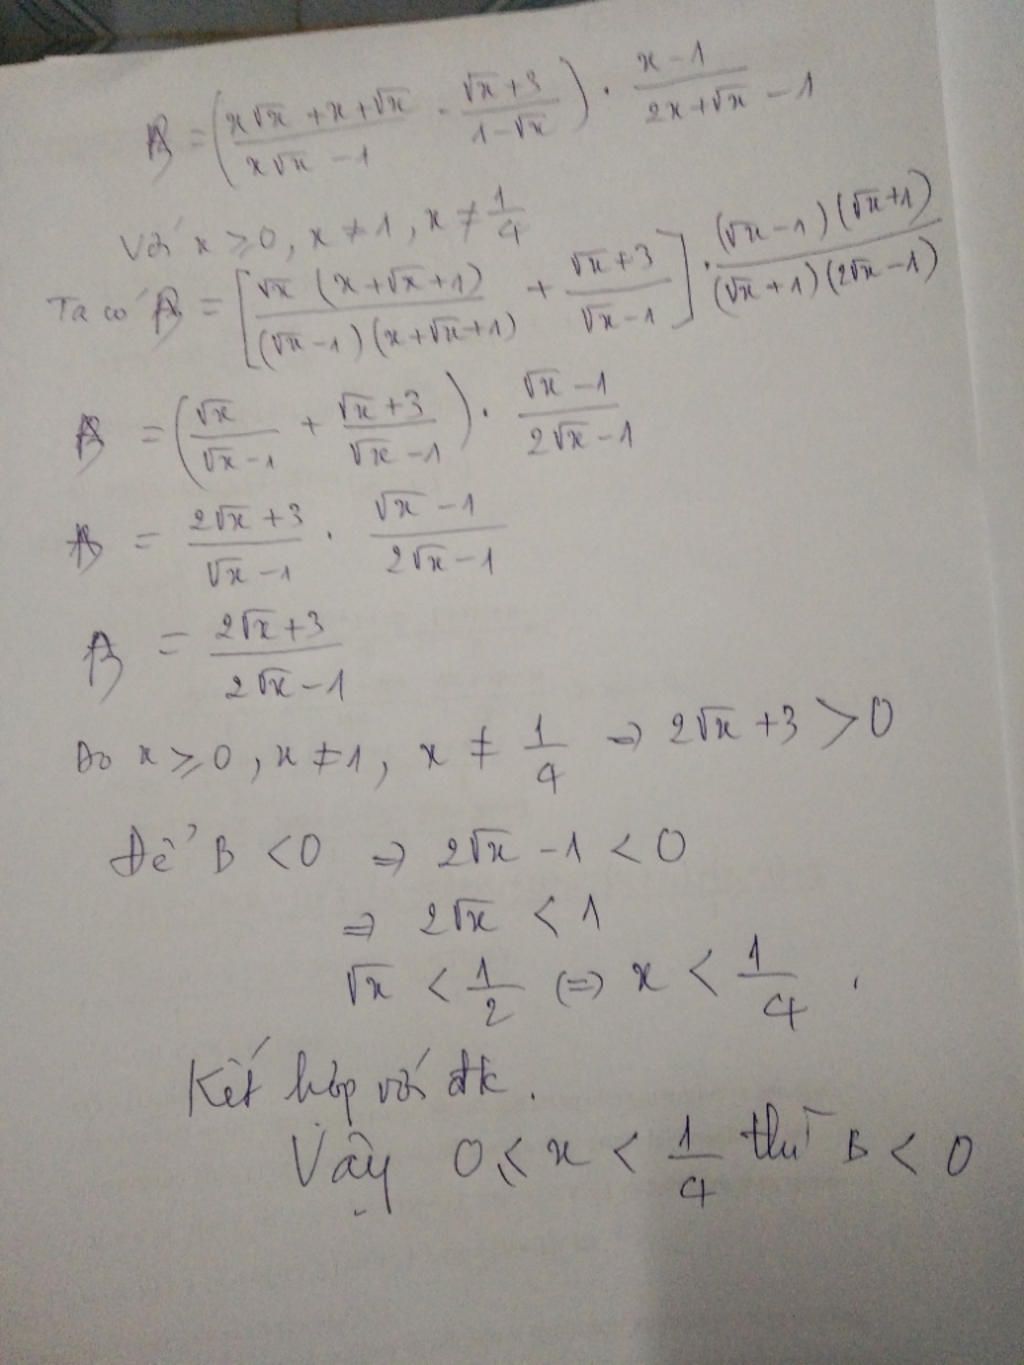 B = (x√x + x + √x / x√x - 1 - √x + 3 / 1 - √x) . x - 1 / 2x + √x - 1
Với x ≥ 0, x ≠ 1, x ≠ 1/4
Ta có B = [√x (x + √x + 1) / (√x - 1)(x + √x + 1) + √x + 3 / √x - 1] . (√x - 1)(√x + 1) / (√x + 1)(2√x - 1)
B = (√x / √x - 1 + √x + 3 / √x - 1) . √x - 1 / 2√x - 1
B = 2√x + 3 / √x - 1 . √x - 1 / 2√x - 1
B = 2√x + 3 / 2√x - 1
Do x ≥ 0, x ≠ 1, x ≠ 1/4 ⇒ 2√x + 3 > 0
Để B < 0 ⇒ 2√x - 1 < 0
⇒ 2√x < 1
√x < 1/2 (⇒) x < 1/4 .
Kết hợp với đk.
Vậy 0 ≤ x < 1/4 thì B < 0